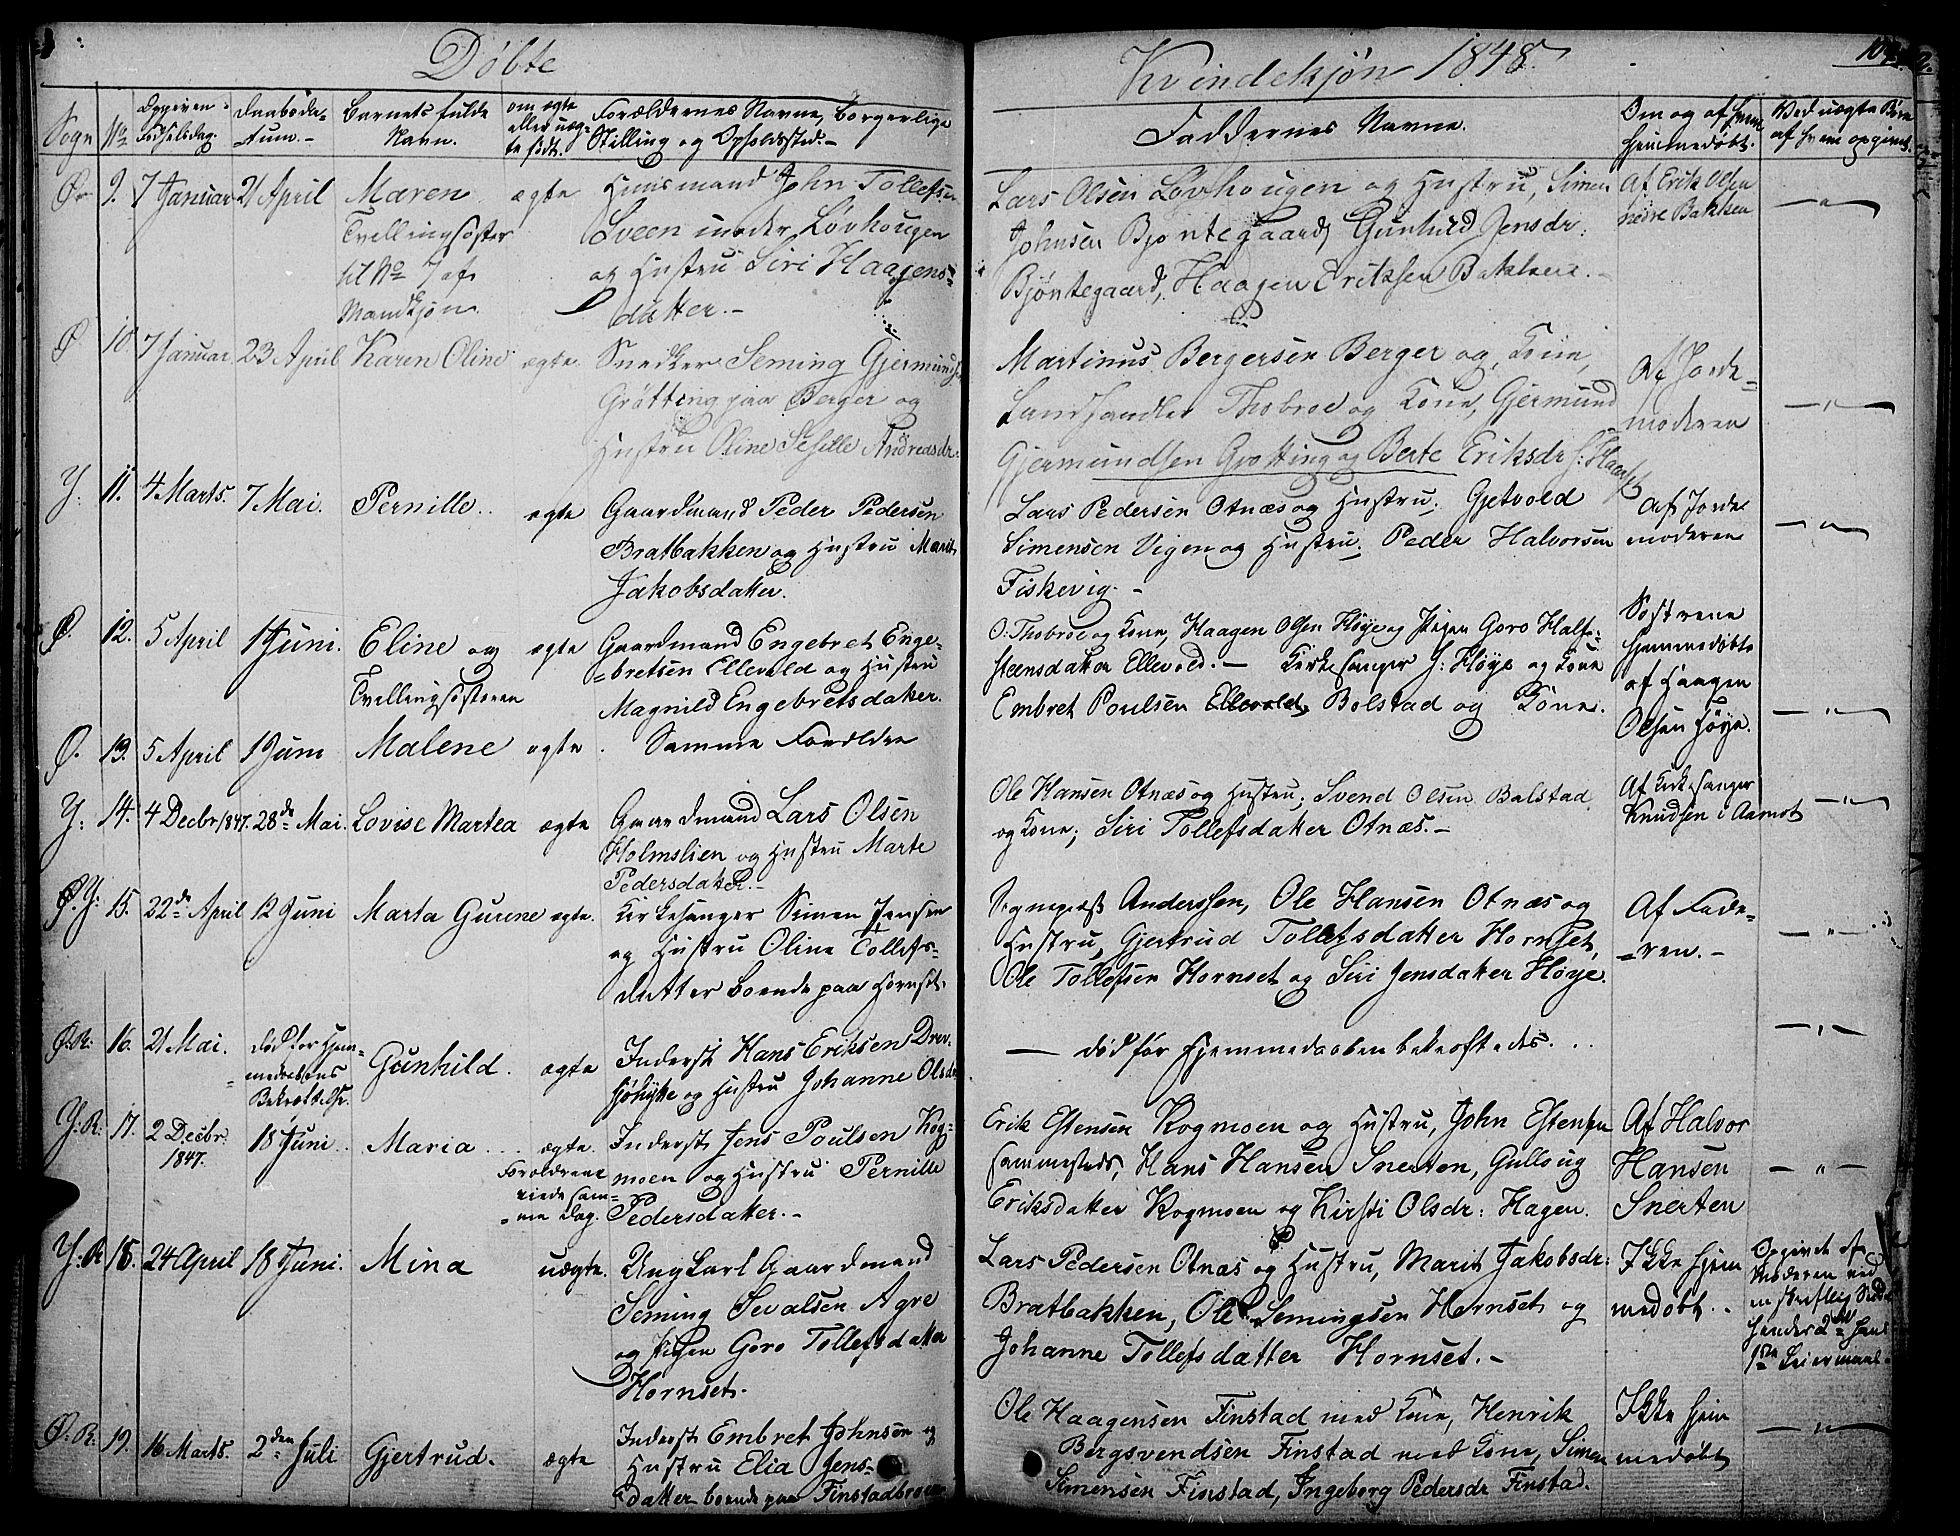 Döbte
Kvindekjøn 1848.
104.
Sogn
No
Opgiven Födselsdag.
Daabsdatum.
Barnets fulde Navn.
om ægte eller uægte födt.
Forældrenes Navne, Borgerlige Stilling og Opholdssted.
Faddernes Navne.
Om og af hvem hjemmedöbt.
Ved uægte Börn af hvem opgivet.
Ø: 9. 7 Januar 21 April Maren ægte Huusmand John Tollefsen
Tvillingsöster Sveen under Løvhougen
til No 7 af og Hustru Siri Haagens-
Mandkjøn. datter.
Lars Olsen Løvhougen og Hustru, Simen
Johnsen Bjøntegaard, Gunhild Jensdr:
Bjøntegaard, Haagen Eriksen Bakken.
Af Erik Olsen
nedre Bakken
Ø 10. 7 Januar 23 April Karen Oline ægte. Snedker Seming Gjermunds:
Grøtting paa Berger og
Hustru Oline Sesille Andreasdr.
Martinus Bergersen Berger og Kone,
Landhandler Thobroe og Kone, Gjermund
Gjermundsen Grøtting og Berte Eriksdr
Af Jorde-
moderen
Y: 11. 4 Marts. 7 Mai. Pernille. ægte Gaardmand Peder Pedersen
Bratbakken og Hustru Marit
Jakobsdatter.
Lars Pedersen Otnæs og Hustru; Gjetvold
Simensen Vigen og Hustru; Peder Halvorsen
Fiskevig.
Af Jorde
moderen
Ø. 12. 5 April 1 Juni. Eline og ægte Gaardmand Engebret Enge-
Tvillingsösteren bretsen Ellevold og Hustru
Magnild Engebretsdatter.
O: Thobroe og Kone, Haagen Olsen Høye og Pigen Goro Half-
steensdatter Ellevold. Kirkesanger J: Høye og Kone
Embret Poulsen Ellevold, Bolstad og Kone.
Söstrene
hjemmedöbte
af Haagen
Olsen Høye.
Ø. 13. 5 April 1 Juni Malene ægte Samme Forældre
Y: 14. 4 Decbr 1847. 28de Mai. Lovise Martea ægte Gaardmand Lars Olsen
Holmslien og Hustru Marte
Pedersdatter.
Ole Hansen Otnæs og Hustru; Svend Olsen Bolstad
og Kone; Siri Tollefsdatter Otnæs.
Af Kirkesanger
Knudsen i Aamot
Ø.Y: 15. 22de April 12 Juni Marta Gurene ægte. Kirkesanger Simen Jensen
og Hustru Oline Tollefs-
datter boende paa Hornset.
Sognepræst Anderssen, Ole Hansen Otnæs og
Hustru, Gjertrud Tollefsdatter Hornset,
Ole Tollefsen Hornset og Siri Jensdatter Høye.
Af Fade-
ren.
Ø.R: 16. 21 Mai. död för Hjem-
medaabens
Bekræftelse.
Gunhild. ægte Inderst Hans Eriksen Drev-
sjöhytte og Hustru Johanne Olsdr
död før Hjemmedaaben bekræftedes.
Y:R: 17. 2 Decbr. 1847. 18 Juni. Maria ægte.
Forældrene
viede sam-
me Dag.
Inderst Jens Poulsen Kog-
moen og Hustru Pernille
Pedersdatter.
Erik Estensen Kogmoen og Hustru, John Estensen
sammesteds, Hans Hansen Snerten, Gulloug
Eriksdatter Kogmoen og Kirsti Olsdr: Hagen.
Af Halvor
Hansen
Snerten
Y:R 18. 24 April 18 Juni. Mina uægte. Ungkarl Gaardmand
Seming Sevalsen Agre
og Pigen Goro Tollefsdatter
Hornset.
Lars Pedersen Otnæs og Hustru, Marit Jakobsdr:
Bratbakken, Ole Semingsen Hornset og
Johanne Tollefsdatter Hornset.
Ikke hjem
medöbt.
Opgivet af
Moderen ved
en skriftlig
hendes 2det hans
1ste Leiermaal.
Ø:R: 19. 16 Marts. 2den Juli Gjertrud. ægte Inderst Embret Johnsen og
Hustru Elia Jens-
datter boende paa Finstadbroen
Ole Haagensen Finstad med Kone, Henrik
Bergsvendsen Finstad med Kone, Simen
Simensen Finstad, Ingeborg Pedersdr Finstad.
Ikke hjem
medöbt